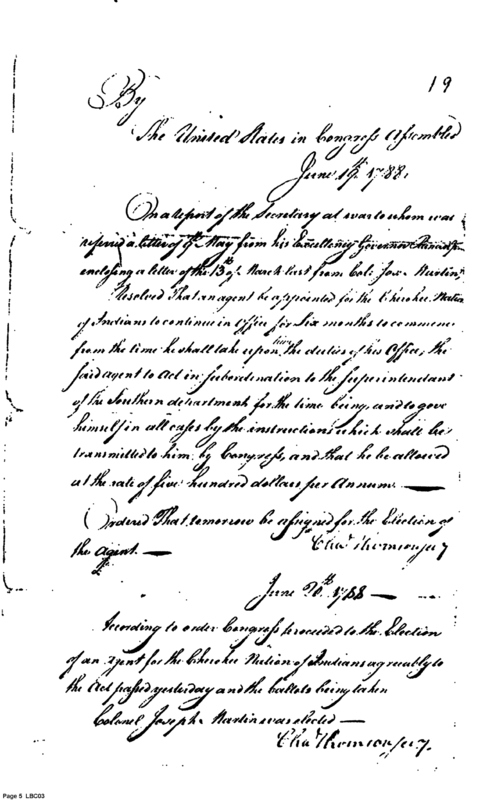 19
By
The United States in Congress Assembled
June 19th. 1788.
On a report of the Secretary at war to whom was
referred a letter of 9th May from his Excellency Governor Randolph
enclosing a letter of the 13th of March last from Colo. Jos. Martin,
Resolved That an agent be appointed for the Cherokee Nation
of Indians to continue in Office for Six months to commence
from the time he shall take upon him the duties of his Office, the
said agent to Act in subordination to the Superintendant
of the Southern department for the time being, and to gove
himself in all cases by the instructions which shall be
transmitted to him by Congress, and that he be allowed
at the rate of five hundred dollars per Annum. —
Ordered That tomorrow be assigned for the Election of
the agent. —
Chas. Thomson Secy
June 20th. 1788 —
According to order Congress proceeded to the Election
of an Agent for the Cherokee Nation of Indians agreeably to
the Act passed yesterday and the ballots being taken
Colonel Joseph Martin was elected —
Chas. Thomson Secy.
Page 5 LBC03